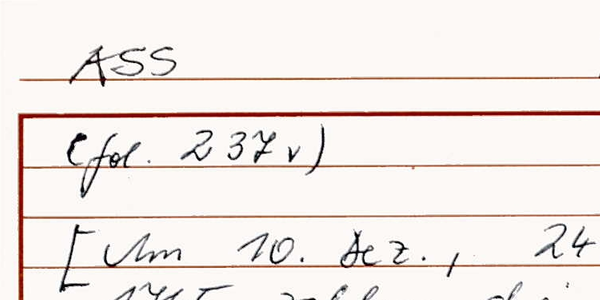 ASS
(fol. 237v)
[Am 10. Dez., 24
1715